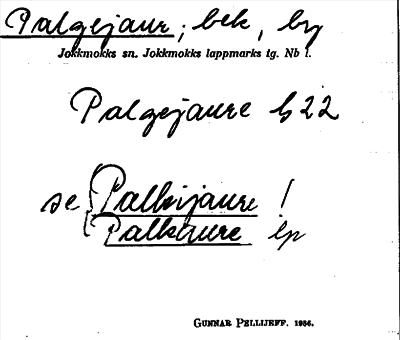 Palgejaur; bek, by
Jokkmokks sn. Jokkmokks lappmarks tg. Nb l.
Palgejaure b22
se Palkijaure !
Palkaure lp
GUNNAR PELLIJEFF. 1986.